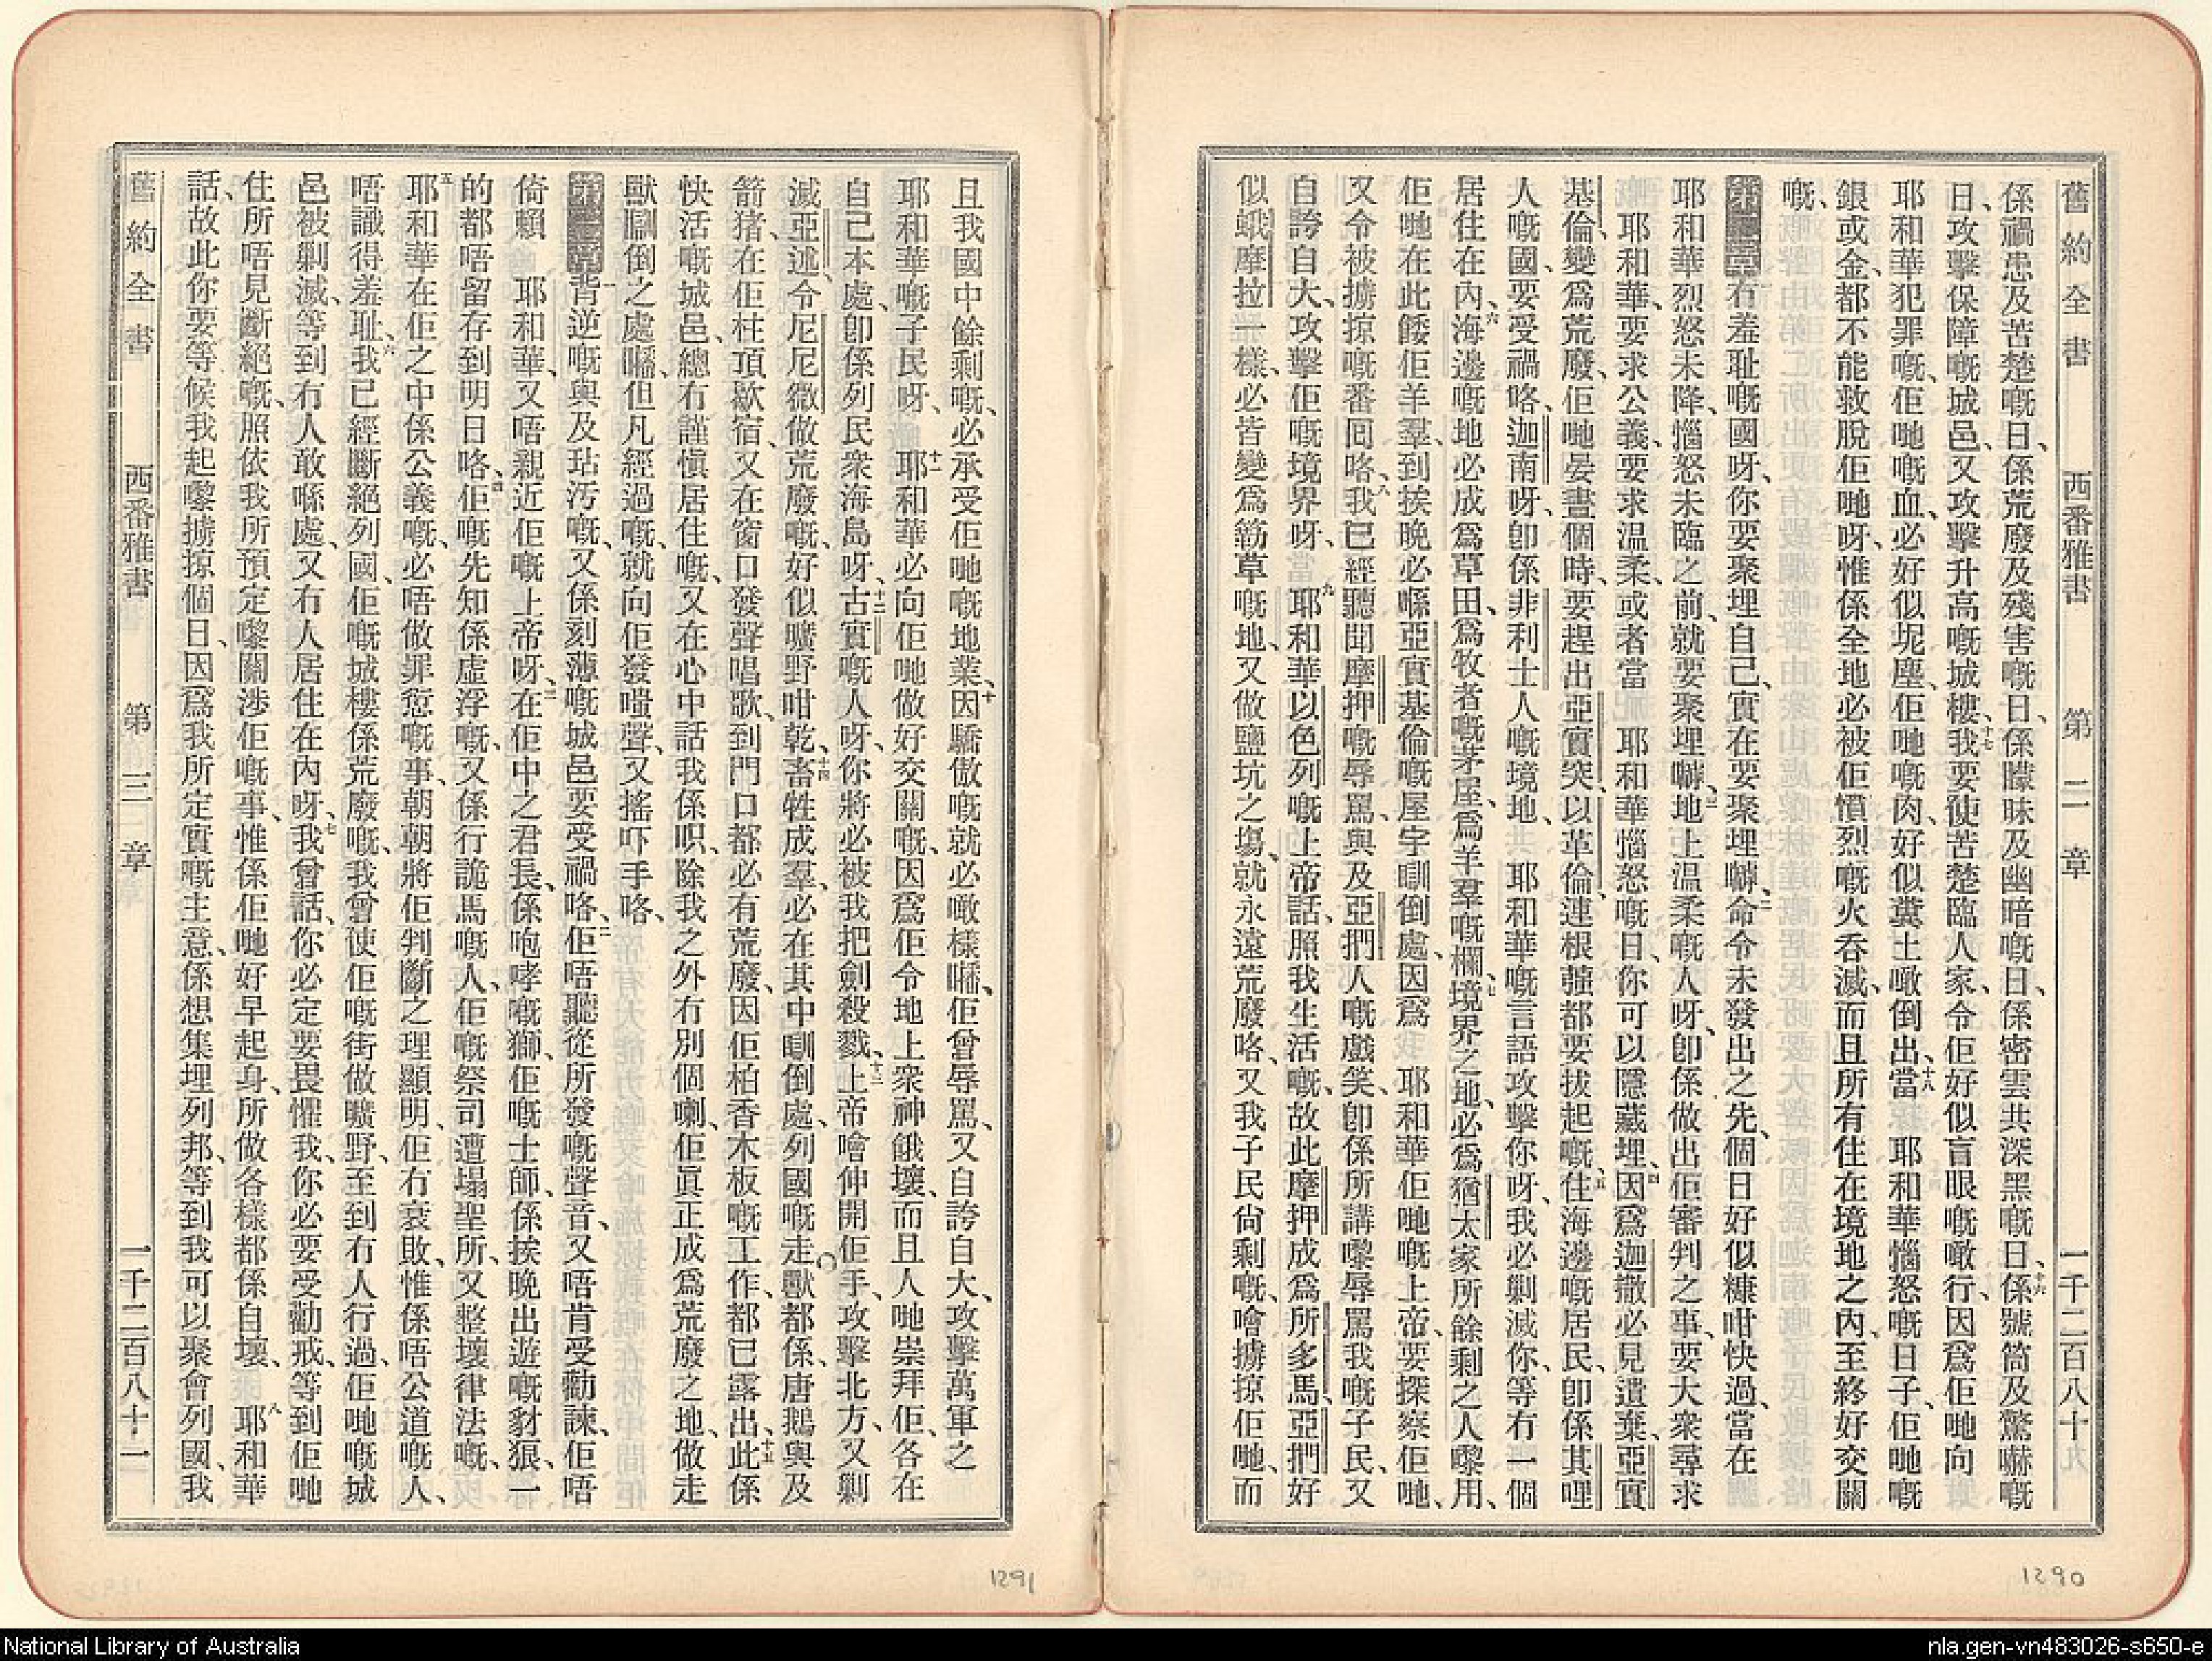 舊約全書 西番雅書 第二章 一千二百八十
係禍患及苦楚嘅日、係荒廢及殘害嘅日、係矇昧及幽暗嘅日、係密雲共深黑嘅日、十六係號筒及驚嚇嘅
日、攻擊保障嘅城邑、又攻擊升高嘅城樓、十七我要使苦楚臨人家、令佢好似盲眼嘅噉行、因爲佢哋向
耶和華犯罪嘅、佢哋嘅血、必好似坭塵、佢哋嘅肉、好似糞土噉倒出、十八當 耶和華惱怒嘅日子、佢哋嘅
銀或金、都不能救脫佢哋呀、惟係全地必被佢憤烈嘅火吞滅、而且所有住在境地之內、至終好交關
嘅、
第二章 冇羞耻嘅國呀、你要聚埋自己、實在要聚埋嚹、二命令未發出之先、個日好似糠咁快過、當在
耶和華烈怒未降、惱怒未臨之前、就要聚埋嚹、三地上温柔嘅人呀、卽係做出佢審判之事、要大衆尋求
耶和華、要求公義、要求温柔、或者當 耶和華惱怒嘅日、你可以隱藏埋、四因爲迦撒必見遺棄、亞實
基倫、變爲荒廢、佢哋晏晝個時、要趕出亞實突、以革倫、連根蘿都要拔起嘅、五住海邊嘅居民、卽係其哩
人嘅國、要受禍咯、迦南呀、卽係非利士人嘅境地、 耶和華嘅言語攻擊你呀、我必剿滅你、等有一個
居住在內、六海邊嘅地必成爲草田、爲牧者嘅茅屋、爲羊羣嘅欄、七境界之地、必爲猶太家所餘剩之人嚟用、
佢哋在此餧佢羊羣、到挨晚必喺亞實基倫嘅屋宇瞓倒處、因爲 耶和華佢哋嘅上帝、要探察佢哋、
又令被擄掠嘅番囘咯、八我已經聽聞摩押嘅辱罵、與及亞捫人嘅戲笑、卽係所講嚟辱罵我嘅子民、又
自誇自大、攻擊佢嘅境界呀、九耶和華以色列嘅上帝話、照我生活嘅、故此摩押成爲所多馬、亞捫好
似蛾摩拉一樣、必皆變爲簕草嘅地、又做鹽坑之塲、就永遠荒廢咯、又我子民尙剩嘅、噲擄掠佢哋、而
1290
且我國中餘剩嘅、必承受佢哋嘅地業、十因驕傲嘅就必噉樣嚹、佢曾辱罵、又自誇自大、攻擊萬軍之
耶和華嘅子民呀、十一耶和華必向佢哋做好交關嘅、因爲佢令地上衆神餓壞、而且人哋崇拜佢、各在
自己本處、卽係列民衆海島呀、十二古實嘅人呀、你將必被我把劍殺戮、十三上帝噲伸開佢手、攻擊北方、又剿
滅亞述、令尼尼微做荒廢嘅、好似曠野咁乾、十四畜牲成羣、必在其中瞓倒處、列國嘅走獸都係、唐鵝與及
箭猪、在佢柱頂歇宿、又在窗口發聲唱歌、到門口都必有荒廢、因佢柏香木板嘅工作、都已露出、十五此係
快活嘅城邑、總冇謹愼居住嘅、又在心中話我係呮、除我之外冇別個喇、佢眞正成爲荒廢之地、做走
獸瞓倒之處嚹、但凡經過嘅、就向佢發嗤聲、又搖吓手咯、
第三章 一背逆嘅與及玷汚嘅、又係刻薄嘅城邑要受禍咯、二佢唔聽從所發嘅聲音、又唔肯受勸諫、佢唔
倚賴 耶和華、又唔親近佢嘅上帝呀、三在佢中之君長、係咆哮嘅獅、佢嘅士師、係挨晚出遊嘅豺狼、一
的都唔留存到明日咯、四佢嘅先知係虛浮嘅、又係行詭馬嘅人、佢嘅祭司遭塌聖所、又整壞律法嘅、
五耶和華在佢之中係公義嘅、必唔做罪愆嘅事、朝朝將佢判斷之理顯明、佢冇衰敗、惟係唔公道嘅人、
唔識得羞耻、六我已經斷絕列國、佢嘅城樓係荒廢嘅、我曾使佢嘅街做曠野、至到冇人行過、佢哋嘅城
邑被剿滅、等到冇人敢喺處、又冇人居住在內呀、七我曾話、你必定要畏懼我、你必要受勸戒、等到佢哋
住所唔見斷絕嘅、照依我所預定嚟關涉佢嘅事、惟係佢哋好早起身、所做各樣都係自壞、 八耶和華
話、故此你要等候我起嚟擄掠個日、因爲我所定實嘅主意、係想集埋列邦、等到我可以聚會列國、我
舊約全書 西番雅書 第三章 一千二百八十一
1291
National Library of Australia
nla.gen-vn483026-s650-e